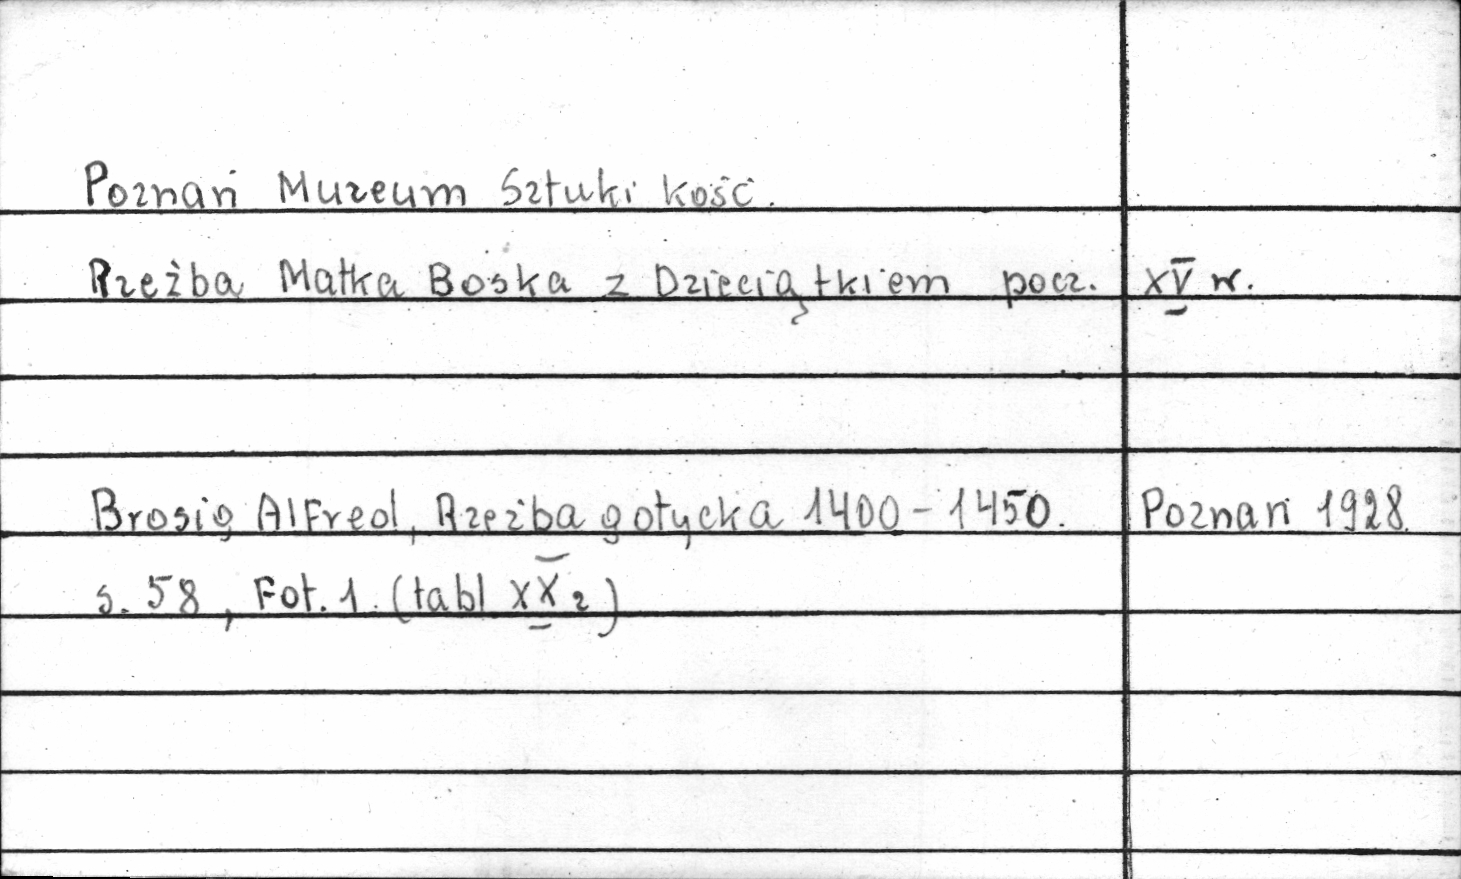 Poznań Muzeum Sztuki kość.
Rzeźba Matka Boska z Dzieciątkiem pocz. XV w.
Brosig Alfred, Rzeźba gotycka 1400-1450. Poznań 1928.
s. 58, Fot. 1. (tabl XX 2)